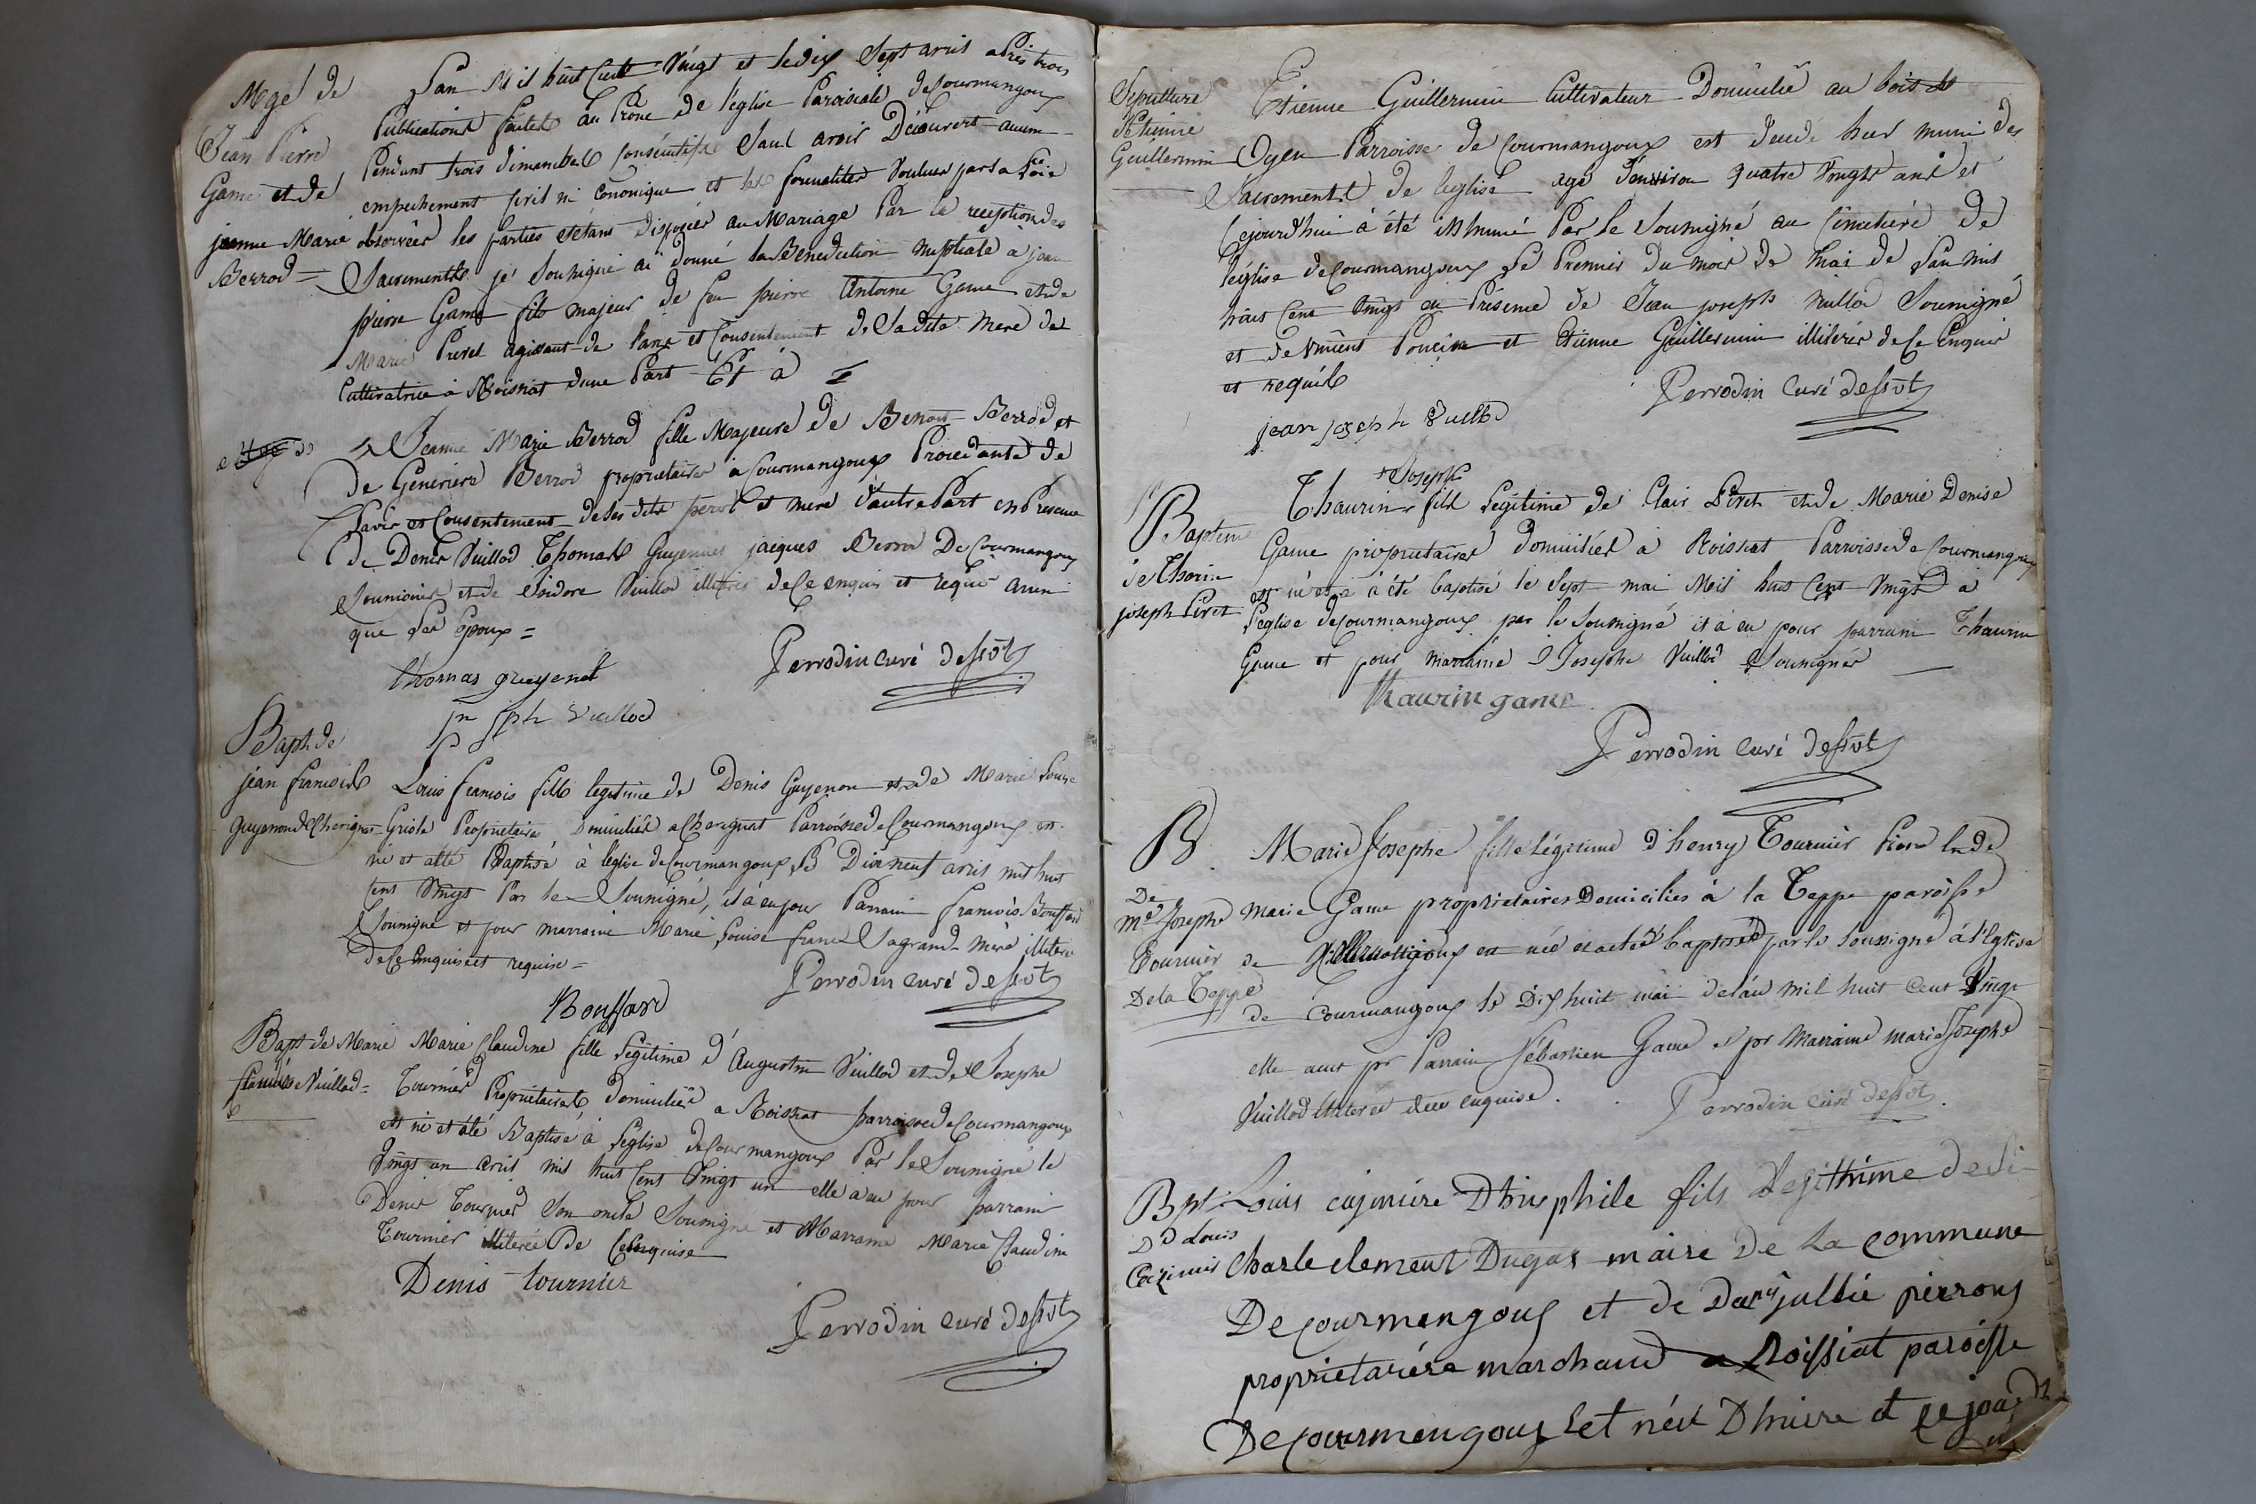 Mge de
Jean Pierre
Game et de
jeanne Marie
Berrod =
L'an Mil huit Cent Vingt et le dix Sept avril après trois
Publications faites au Prone de l'église Paroissiale de Courmangoux
Pendant trois dimanches Consécutifs Sans avoir Découvert aucun
empechement sivil ni cononique et les formalités Voulues par la Loix
observées les parties s'etans Disposées au Mariage Par la reception des
Sacrements je Sousigné ai donné la Benediction nuptiale à jean
pierre Game fils majeur de feu pierre Antoine Game et de
Marie Prevel agissant de l'avis et Consentement de Sa dite mere
Cultivatrice à Roissiat d'une Part Et à
Jeanne Marie Berrod fille Majeure de Benoit Berrod et
de Genevieve Berrod proprietaires a Courmangoux Procedante de
l'avis et Consentement de Ses dits pere et mere d'autre Part en Presence
de Denis Vuillod Thomas Guyennet jacques Berrod De Courmangoux
Sousignés et de Isidore Vuillod illiteré de Ce enquis et requis ainsi
que les Epoux =
thomas gueyenet
Perrodin curé dessvt
jn jph vuillod
Bapt de
jean francois
guyenon de Cherignat
Louis francois fils legitime de Denis Guyenon et de Marie Louise
Proprietaires Domiciliés a Cherignat Parroisse de Courmangoux est
né et a été Baptisé à l'église de Courmangoux Le Dix neuf avril mil huit
Cent Vingt Par le Sousigné, il a eu pour Parrain francois Bouffard
Sousigné et pour marraine Marie Louise france Sagrand mère illiterée
de Ce enquise et requise =
Perrodin curé dessvt
Bouffard
Bapt de Marie
Claudine Vuillod =
Marie Claudine fille Légitime d'Augustin Vuillod et de Josephe
Tournier Proprietaires domiciliés a Roissiat parroisse de Courmangoux
est né et été Baptisé à l'église de Courmangoux Par le Sousigné le
Vingt un avril mil huit Cent Vingt un elle a eu pour parrain
Denis Tournier Son oncle Sousigné et Marraine Marie Claudine
Tournier illiterée De Ce enquise
Denis tournier
Perrodin curé dessvt
Sepulture
d'Etienne
Guillermin
Etienne Guillermin Cultivateur Domicilié au bois
Oyen Parroisse de Courmangoux est décédé hier muni des
Sacrements de l'eglise agé d'environ quatre Vingts ans et
Cejourd'hui à été inhumé Par le Sousigné au Cimetière de
l'église de Courmangoux Le Premier du mois de Mai de L'an mil
huit Cent Vingt en Présence de Jean joseph Vuillod Sousigné
et de Vincent Poncin et Etienne Guillermin illiterés de Ce Enquis
et requis
Perrodin Curé dessvt
jean joseph Vuillod
Baptême
de Thorin
joseph Piret
Joseph
Thaurin fils Légitime de Clair Piret et de Marie Denise
Game proprietaires domiciliés à Roissiat Parroisse de Courmangoux
est né et a été baptisé le Sept mai Mil huit Cent Vingt à
l'église de Courmangoux par le Sousigné il a eu pour parrain Thaurin
Game et pour marraine Josephe Vuillod Sousignés
Thaurin game
Perrodin Curé dessvt
B
De
Me Josephe
Tournier
De la Teppe
Marie Josephe fille légitime d'henry Tournier Pierre et de
Marie Game proprietaires Domiciliés à la Teppe paroisse
de Courmangoux est née et a été baptisée par le Soussigné à l'Eglise
de Courmangoux le Dix huit mai de l'an mil huit cent Vingt
elle a eut pr Parrain Sébastien Game et pr Marraine marie Josephe
Vuillod illiteres de ce enquise.
Perrodin Curé dessvt
Bpt
Dd Louis
Cazimir
Louis cajimire Dhiuphile fils Legithime de Si
Charle clement Dugas maire De La Commune
De Courmengoux et de Dame jullie pierrous
proprietaiére marchand a Roissiat paroisse
De Courmengoux Let néu D hiere et ce jourd